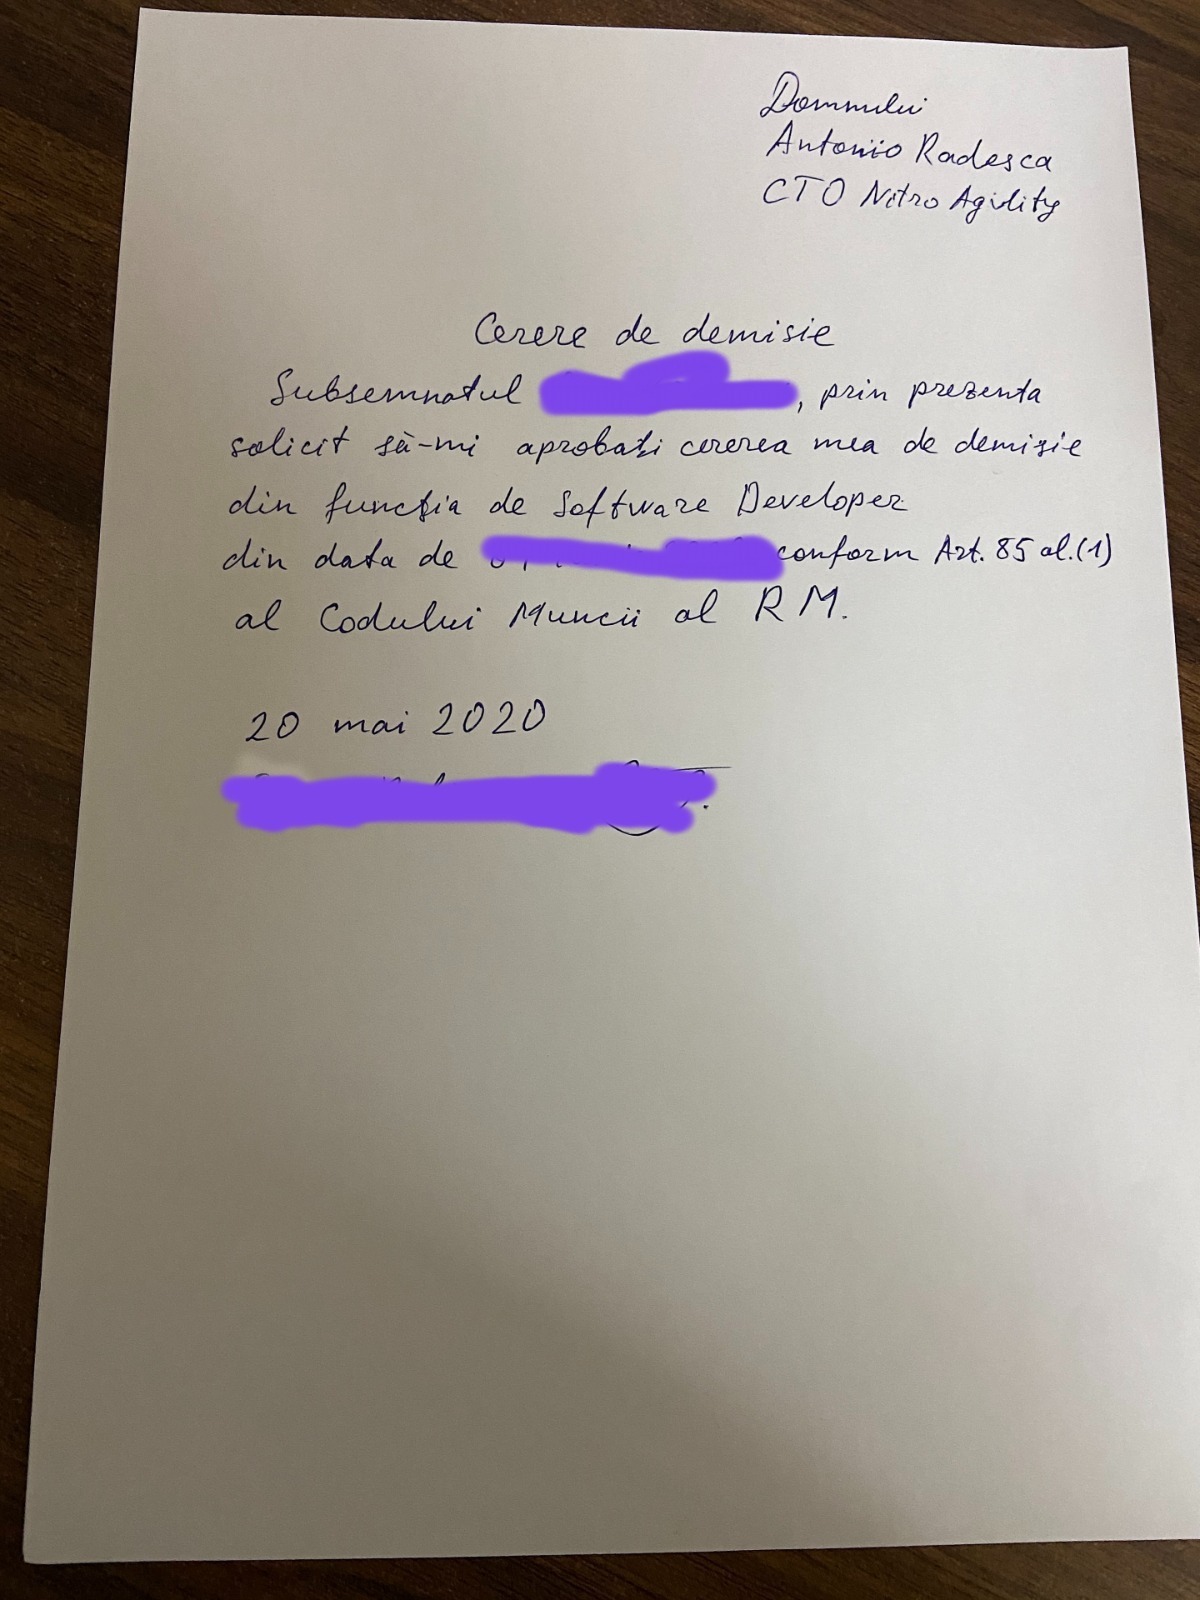 Domnului
Antonio Radesca
CTO Nitro Agility
Cerere de demisie
Subsemnatul , prin prezenta
solicit să-mi aprobați cererea mea de demisie
din funcția de Software Developer
din data de conform Art. 85 al.(1)
al Codului Muncii al RM.
20 mai 2020